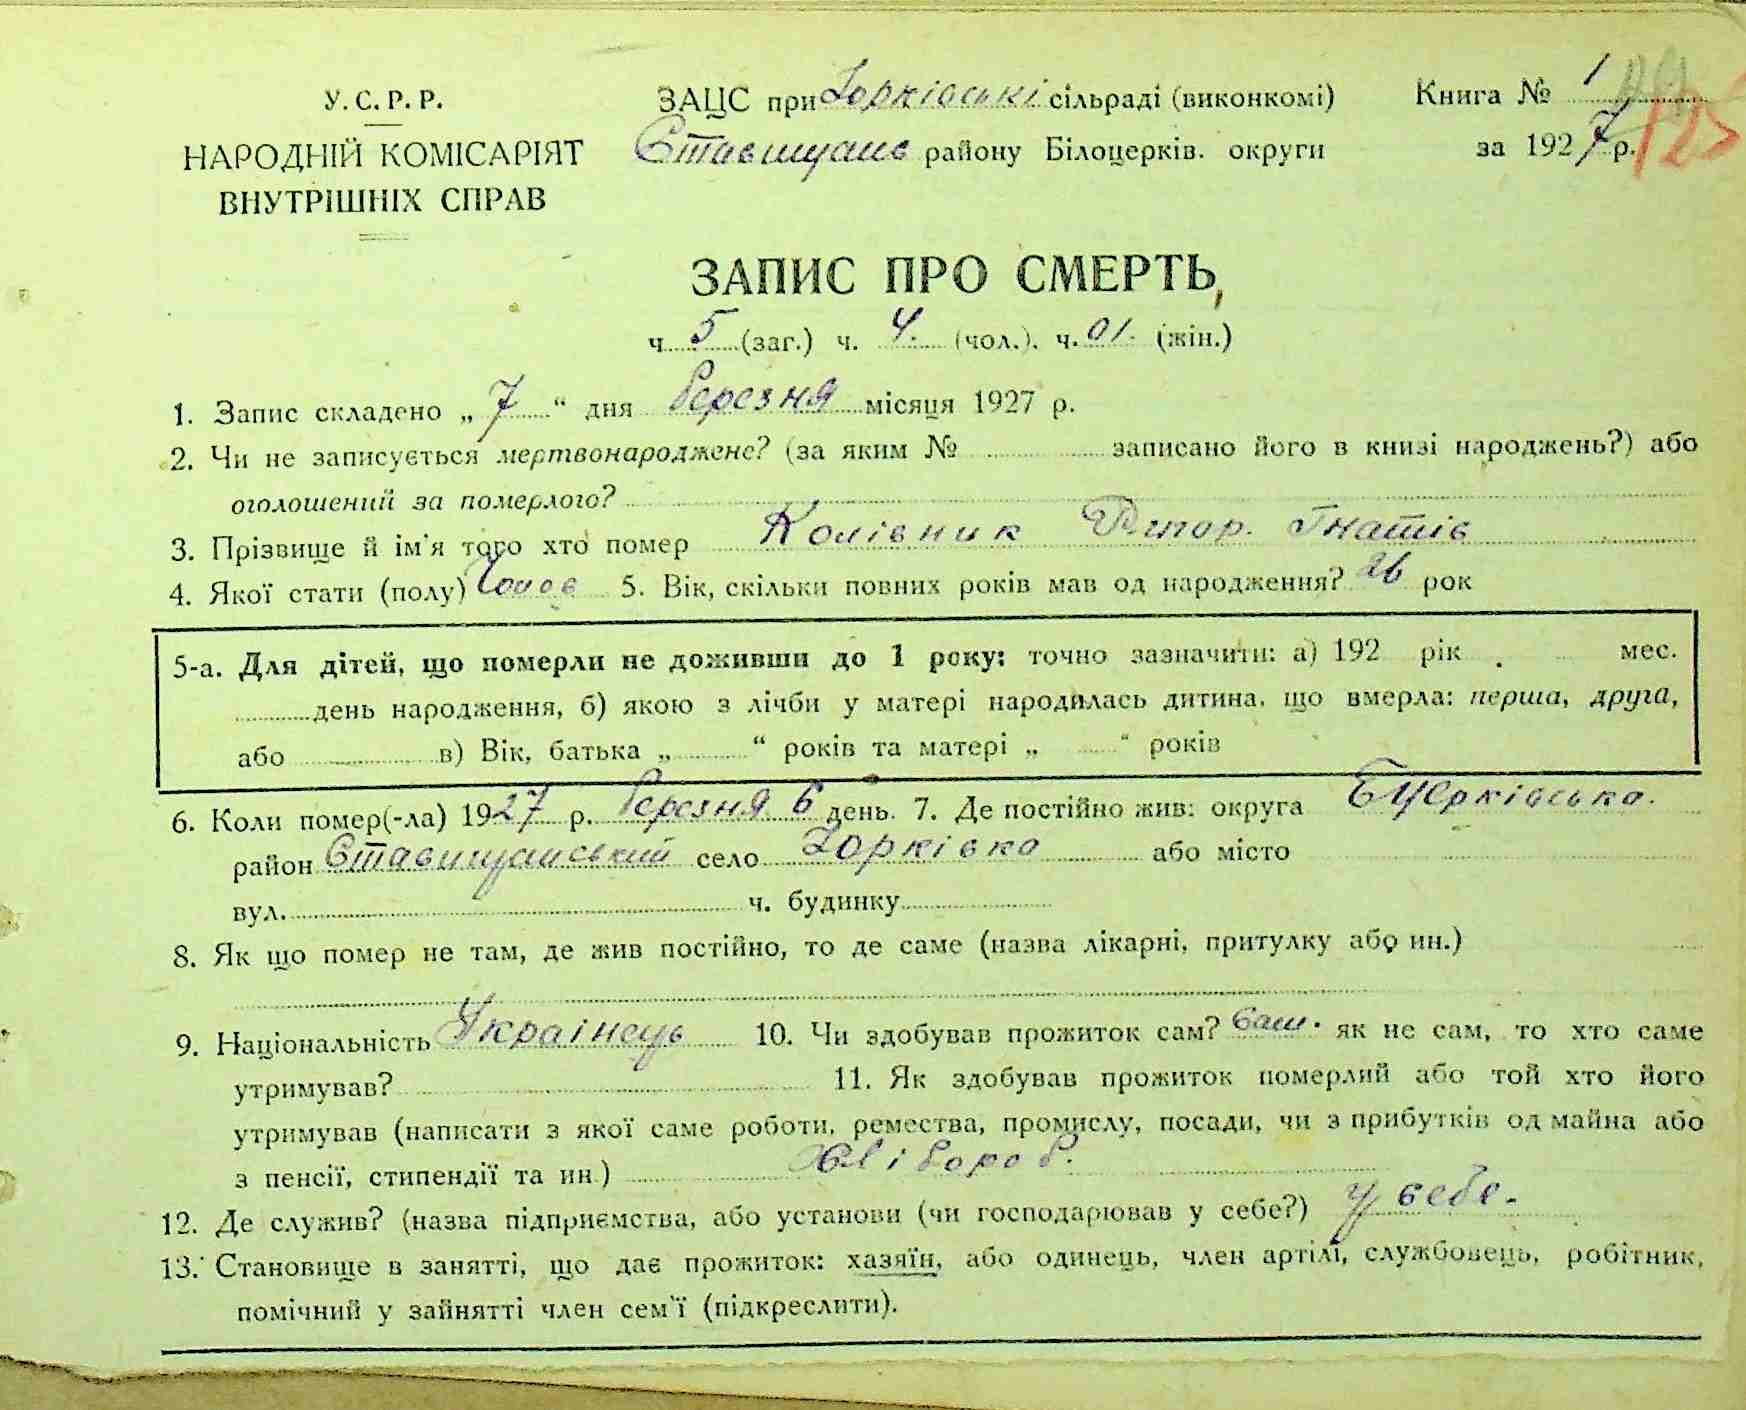 У. С. Р. Р.
НАРОДНІЙ КОМІСАРІЯТ
ВНУТРІШНІХ СПРАВ
ЗАЦС при Зорківські сільраді (виконкомі)
Ставищанс району Білоцерків. округи
Книга № 1
за 1927 р.
125
ЗАПИС ПРО СМЕРТЬ
ч. 5 (заг.) ч. 4. (чол.). ч. 01. (жін.)
1. Запис складено „ 7 “ дня березня місяця 1927 р.
2. Чи не записується мертвонароджене? (за яким № записано його в книзі народжень?) або
оголошений за померлого?
3. Прізвище й ім'я того хто помер Колівник Гнатів
4. Якої стати (полу) Чолов 5. Вік, скільки повних років мав од народження? 26 рок
5-а. Для дітей, що померли не доживши до 1 року: точно зазначити: а) 192 рік мес.
день народження, б) якою з лічби у матері народилась дитина, що вмерла: перша, друга,
або в) Вік, батька „ “ років та матері „ “ років
6. Коли помер(-ла) 1927 р. березня 6 день. 7. Де постійно жив: округа БЦерківсько.
район Ставищанський село Зорківко або місто
вул. ч. будинку
8. Як що помер не там, де жив постійно, то де саме (назва лікарні, притулку або ин.)
9. Національність Українець 10. Чи здобував прожиток сам? Сам. як не сам, то хто саме
утримував? 11. Як здобував прожиток померлий або той хто його
утримував (написати з якої саме роботи, ремества, промислу, посади, чи з прибутків од майна або
з пенсії, стипендії та ин.) Хлібороб.
12. Де служив? (назва підприємства, або установи (чи господарював у себе?) у себе.
13. Становище в занятті, що дає прожиток: хазяїн, або одинець, член артілі, службовець, робітник,
помічний у зайнятті член сем'ї (підкреслити).